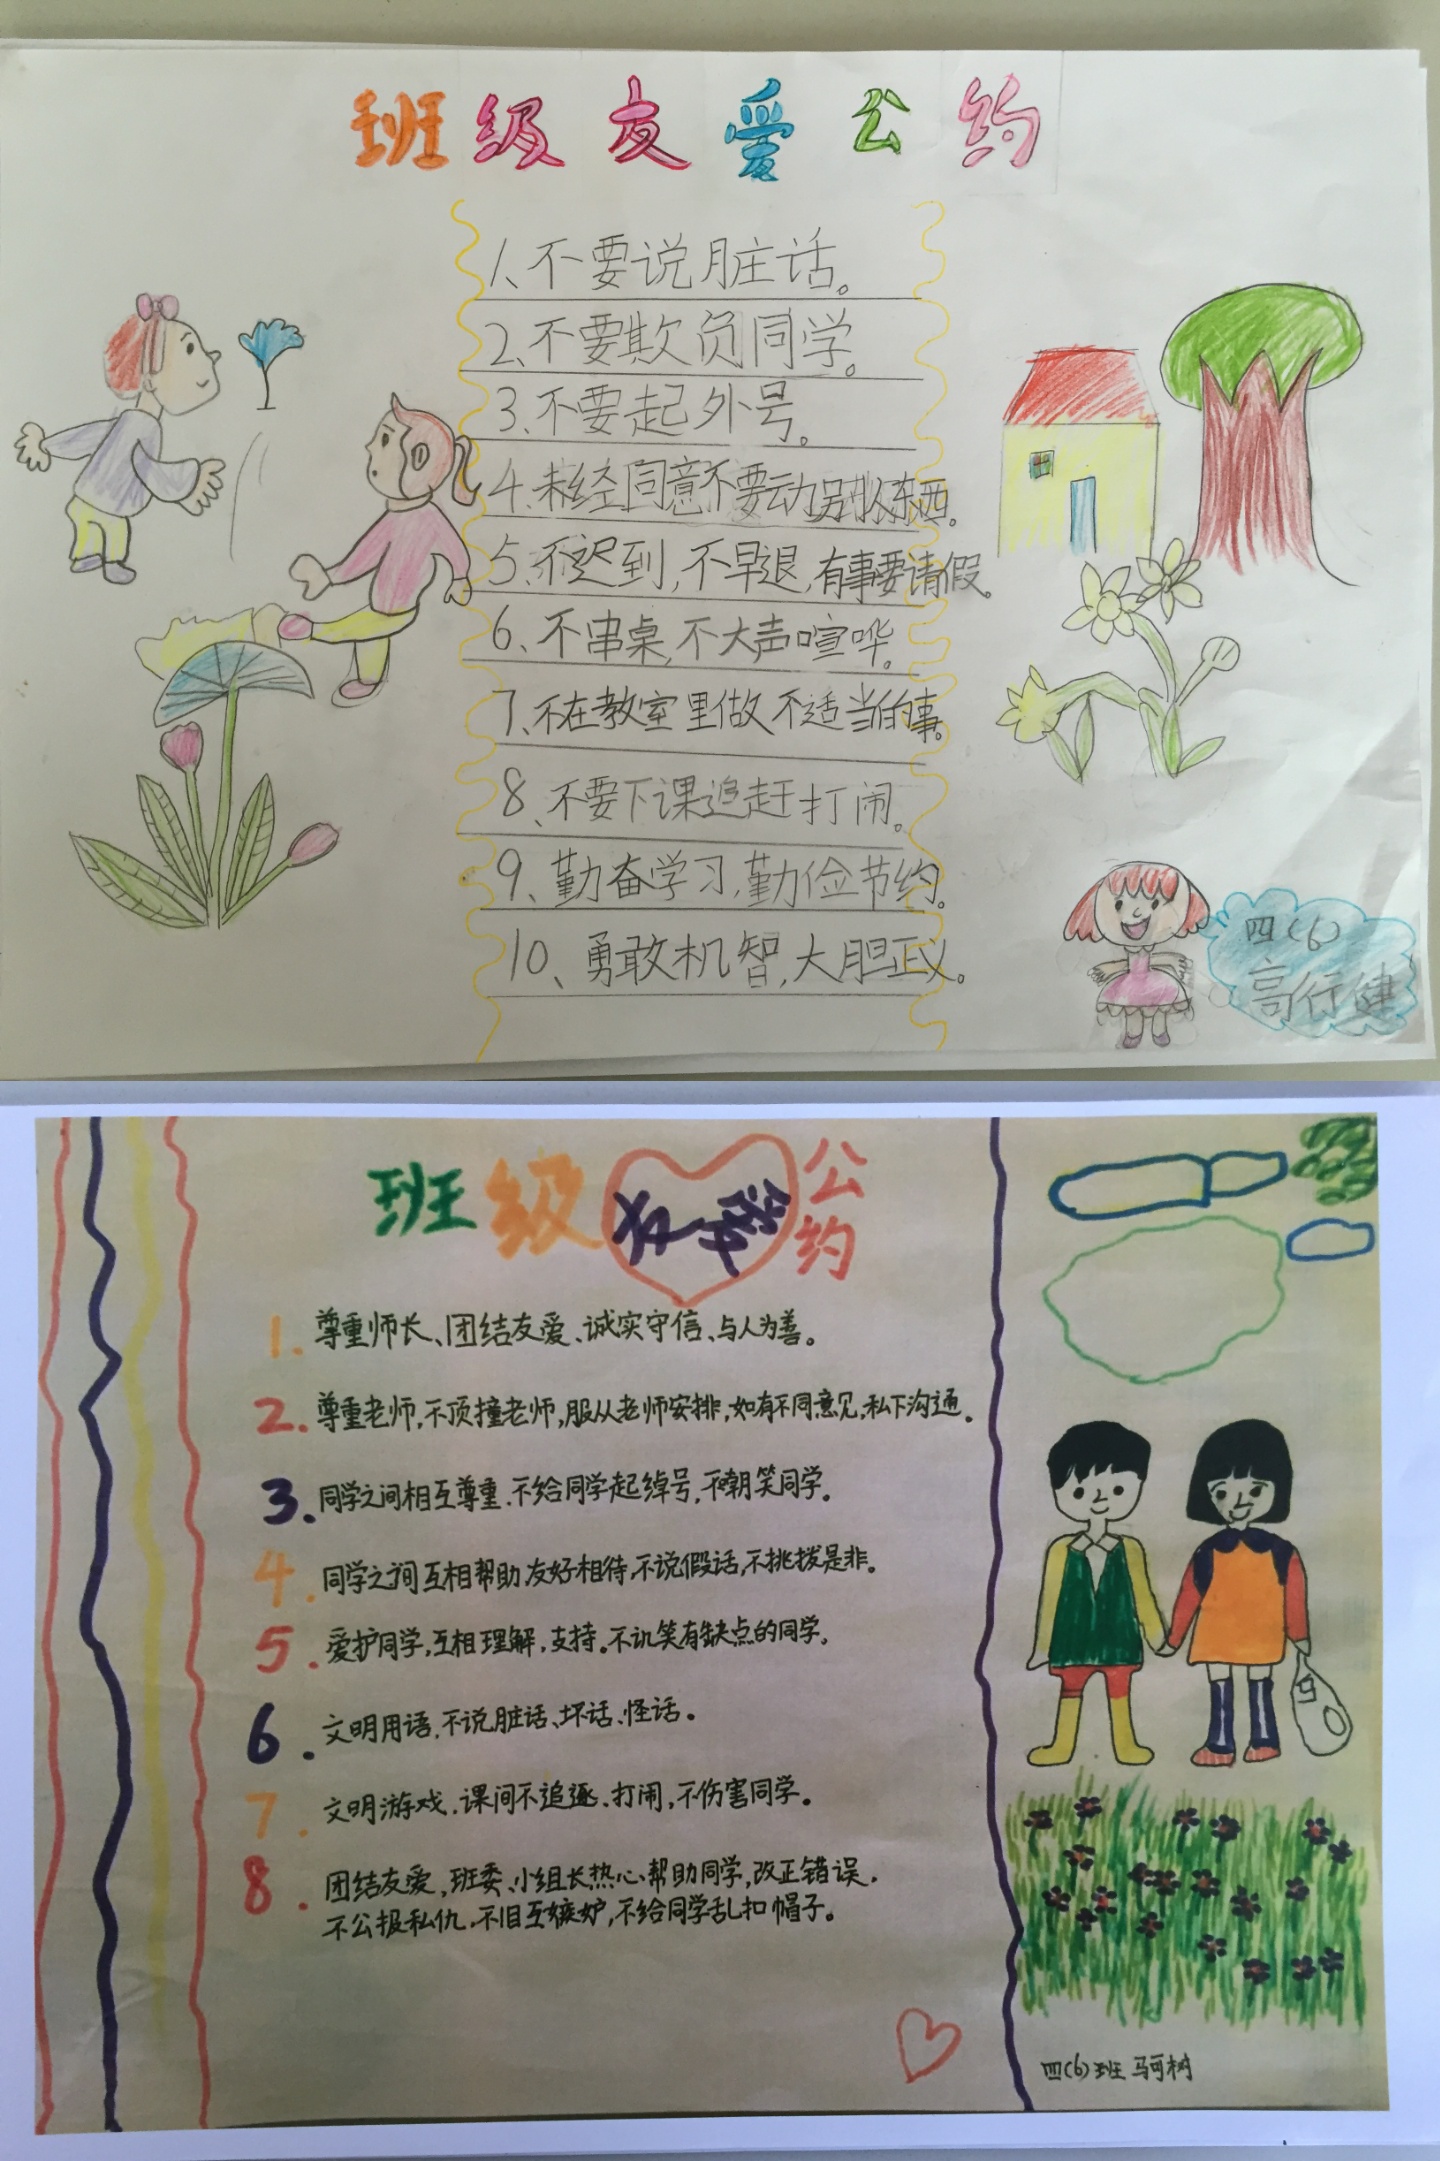 班级友爱公约
1、不要说脏话。
2、不要欺负同学。
3、不要起外号。
4、未经同意不要动别人东西。
5、不迟到,不早退,有事要请假。
6、不串桌,不大声喧哗。
7、不在教室里做不适当的事。
8、不要下课追赶打闹。
9、勤奋学习,勤俭节约。
10、勇敢机智,大胆正义。
四(6)
高行健
班级友爱公约
1.尊重师长、团结友爱、诚实守信、与人为善。
2.尊重老师,不顶撞老师,服从老师安排,如有不同意见,私下沟通。
3.同学之间相互尊重、不给同学起绰号,不嘲笑同学。
4.同学之间互相帮助,友好相待,不说假话,不挑拨是非。
5.爱护同学,互相理解,支持。不讥笑有缺点的同学。
6.文明用语,不说脏话、坏话、怪话。
7.文明游戏、课间不追逐、打闹,不伤害同学。
8.团结友爱,班委、小组长热心帮助同学,改正错误,
不公报私仇,不相互嫉妒,不给同学乱扣帽子。
四(6)班 马可树